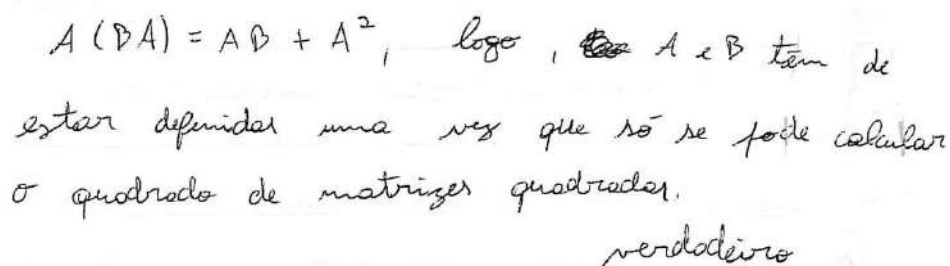 A (BA) = AB + A², logo, A e B têm de
estar definidas uma vez que só se pode calcular
o quadrado de matrizes quadradas.
verdadeiro